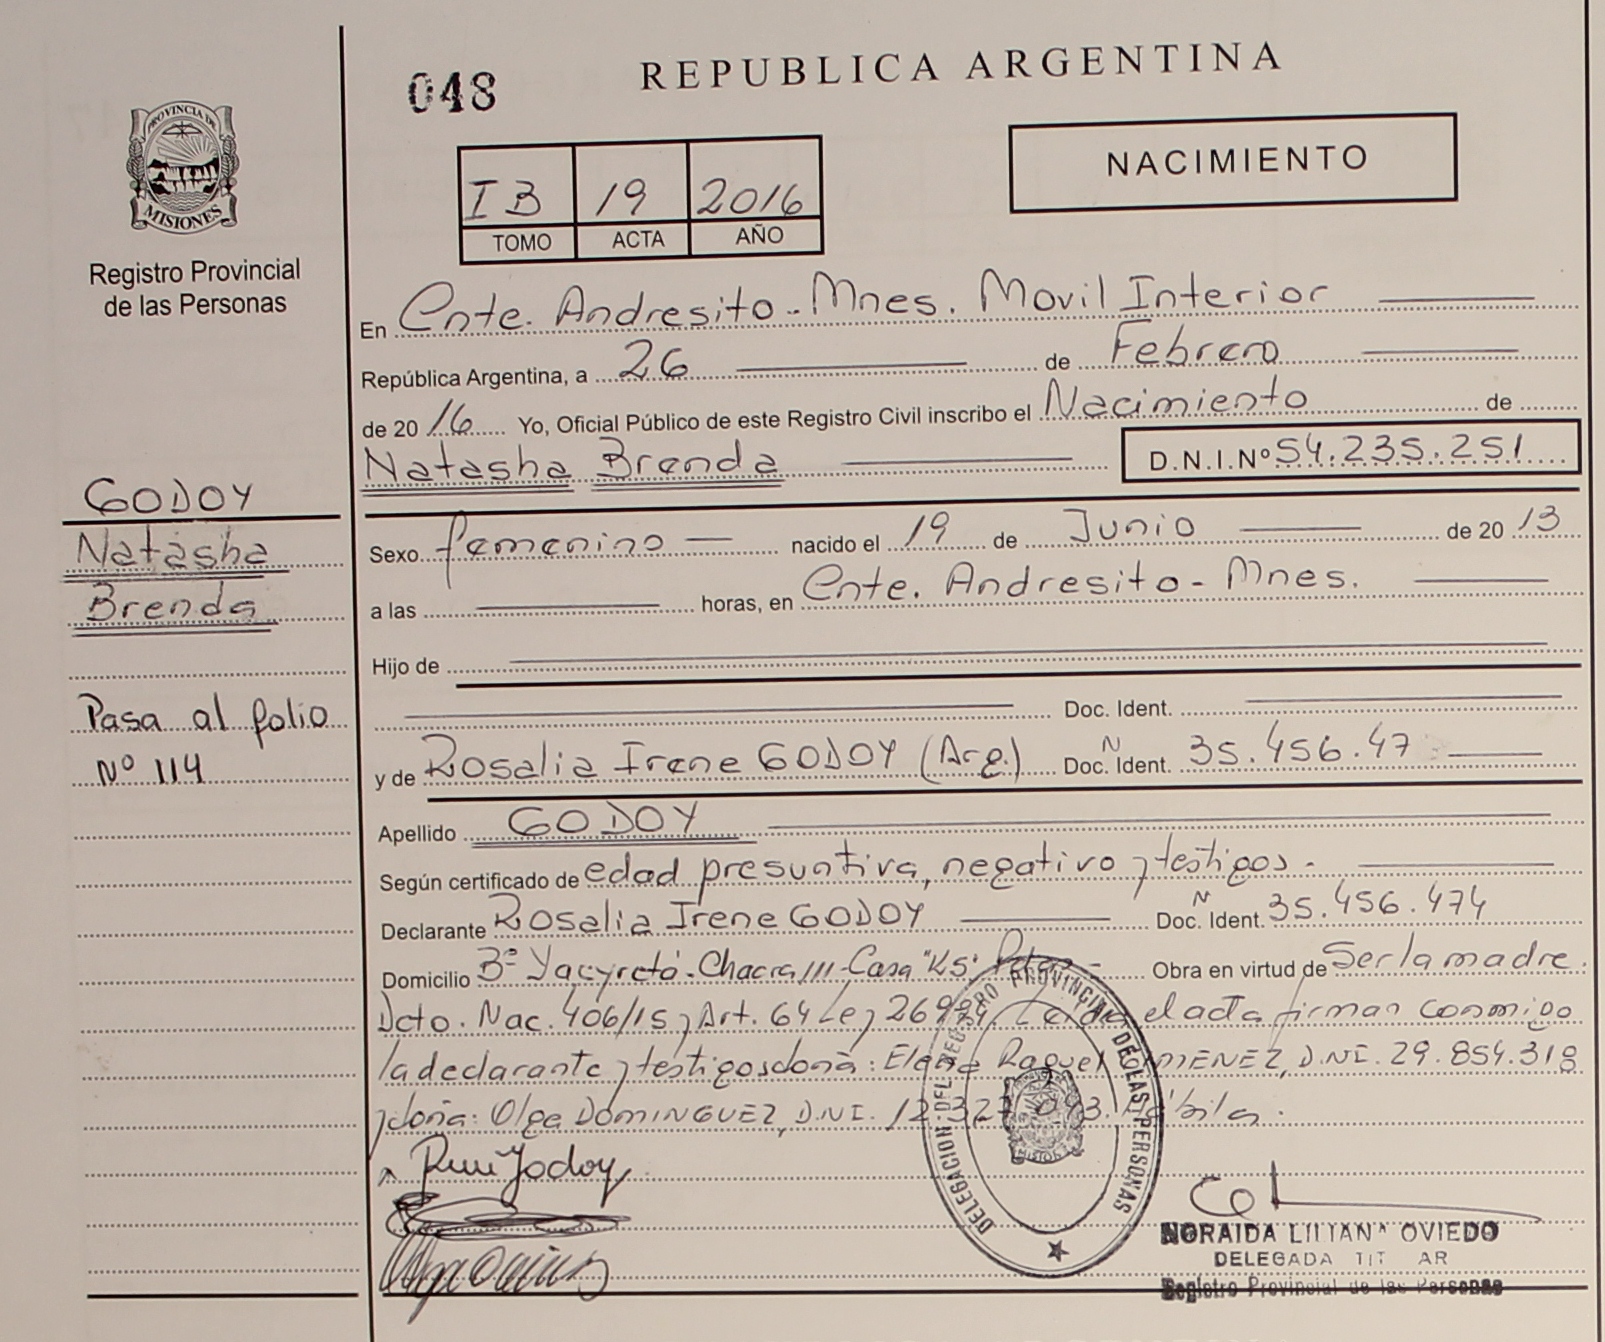 048
REPUBLICA ARGENTINA
PROVINCIA DE
MISIONES
Registro Provincial
de las Personas
IB 19 2016
TOMO ACTA AÑO
NACIMIENTO
En Cnte. Andresito - Mnes. Movil Interior
República Argentina, a 26 de Febrero
de 2016 Yo, Oficial Público de este Registro Civil inscribo el Nacimiento de
Natasha Brenda D.N.I.Nº 54.235.251
GODOY
Natasha
Brenda
Pasa al folio
Nº 114
Sexo femenino nacido el 19 de Junio de 2013
a las horas, en Cnte. Andresito - Mnes.
Hijo de
Doc. Ident.
y de Rosalia Irene GODOY (Arg.) Doc. Ident. N 35.456.47
Apellido GODOY
Según certificado de edad presuntiva, negativo y testigos.
Declarante Rosalia Irene GODOY Doc. Ident. N 35.456.474
Domicilio Bº Yacyretá - Chacra 111 - Casa "KS" Obra en virtud de Ser la madre.
Dcto. Nac. 406/15 y Art. 64 Ley el acta firman conmigo
la declarante y testigos doña: Raquel D.N.I. 29.854.318
y doña: Olga DOMINGUEZ, D.N.I.
DELEGACION DEL REGISTRO PROVINCIAL DE LAS PERSONAS
MISIONES
NORAIDA LILIANA OVIEDO
DELEGADA TIT AR
Registro Provincial de las Personas